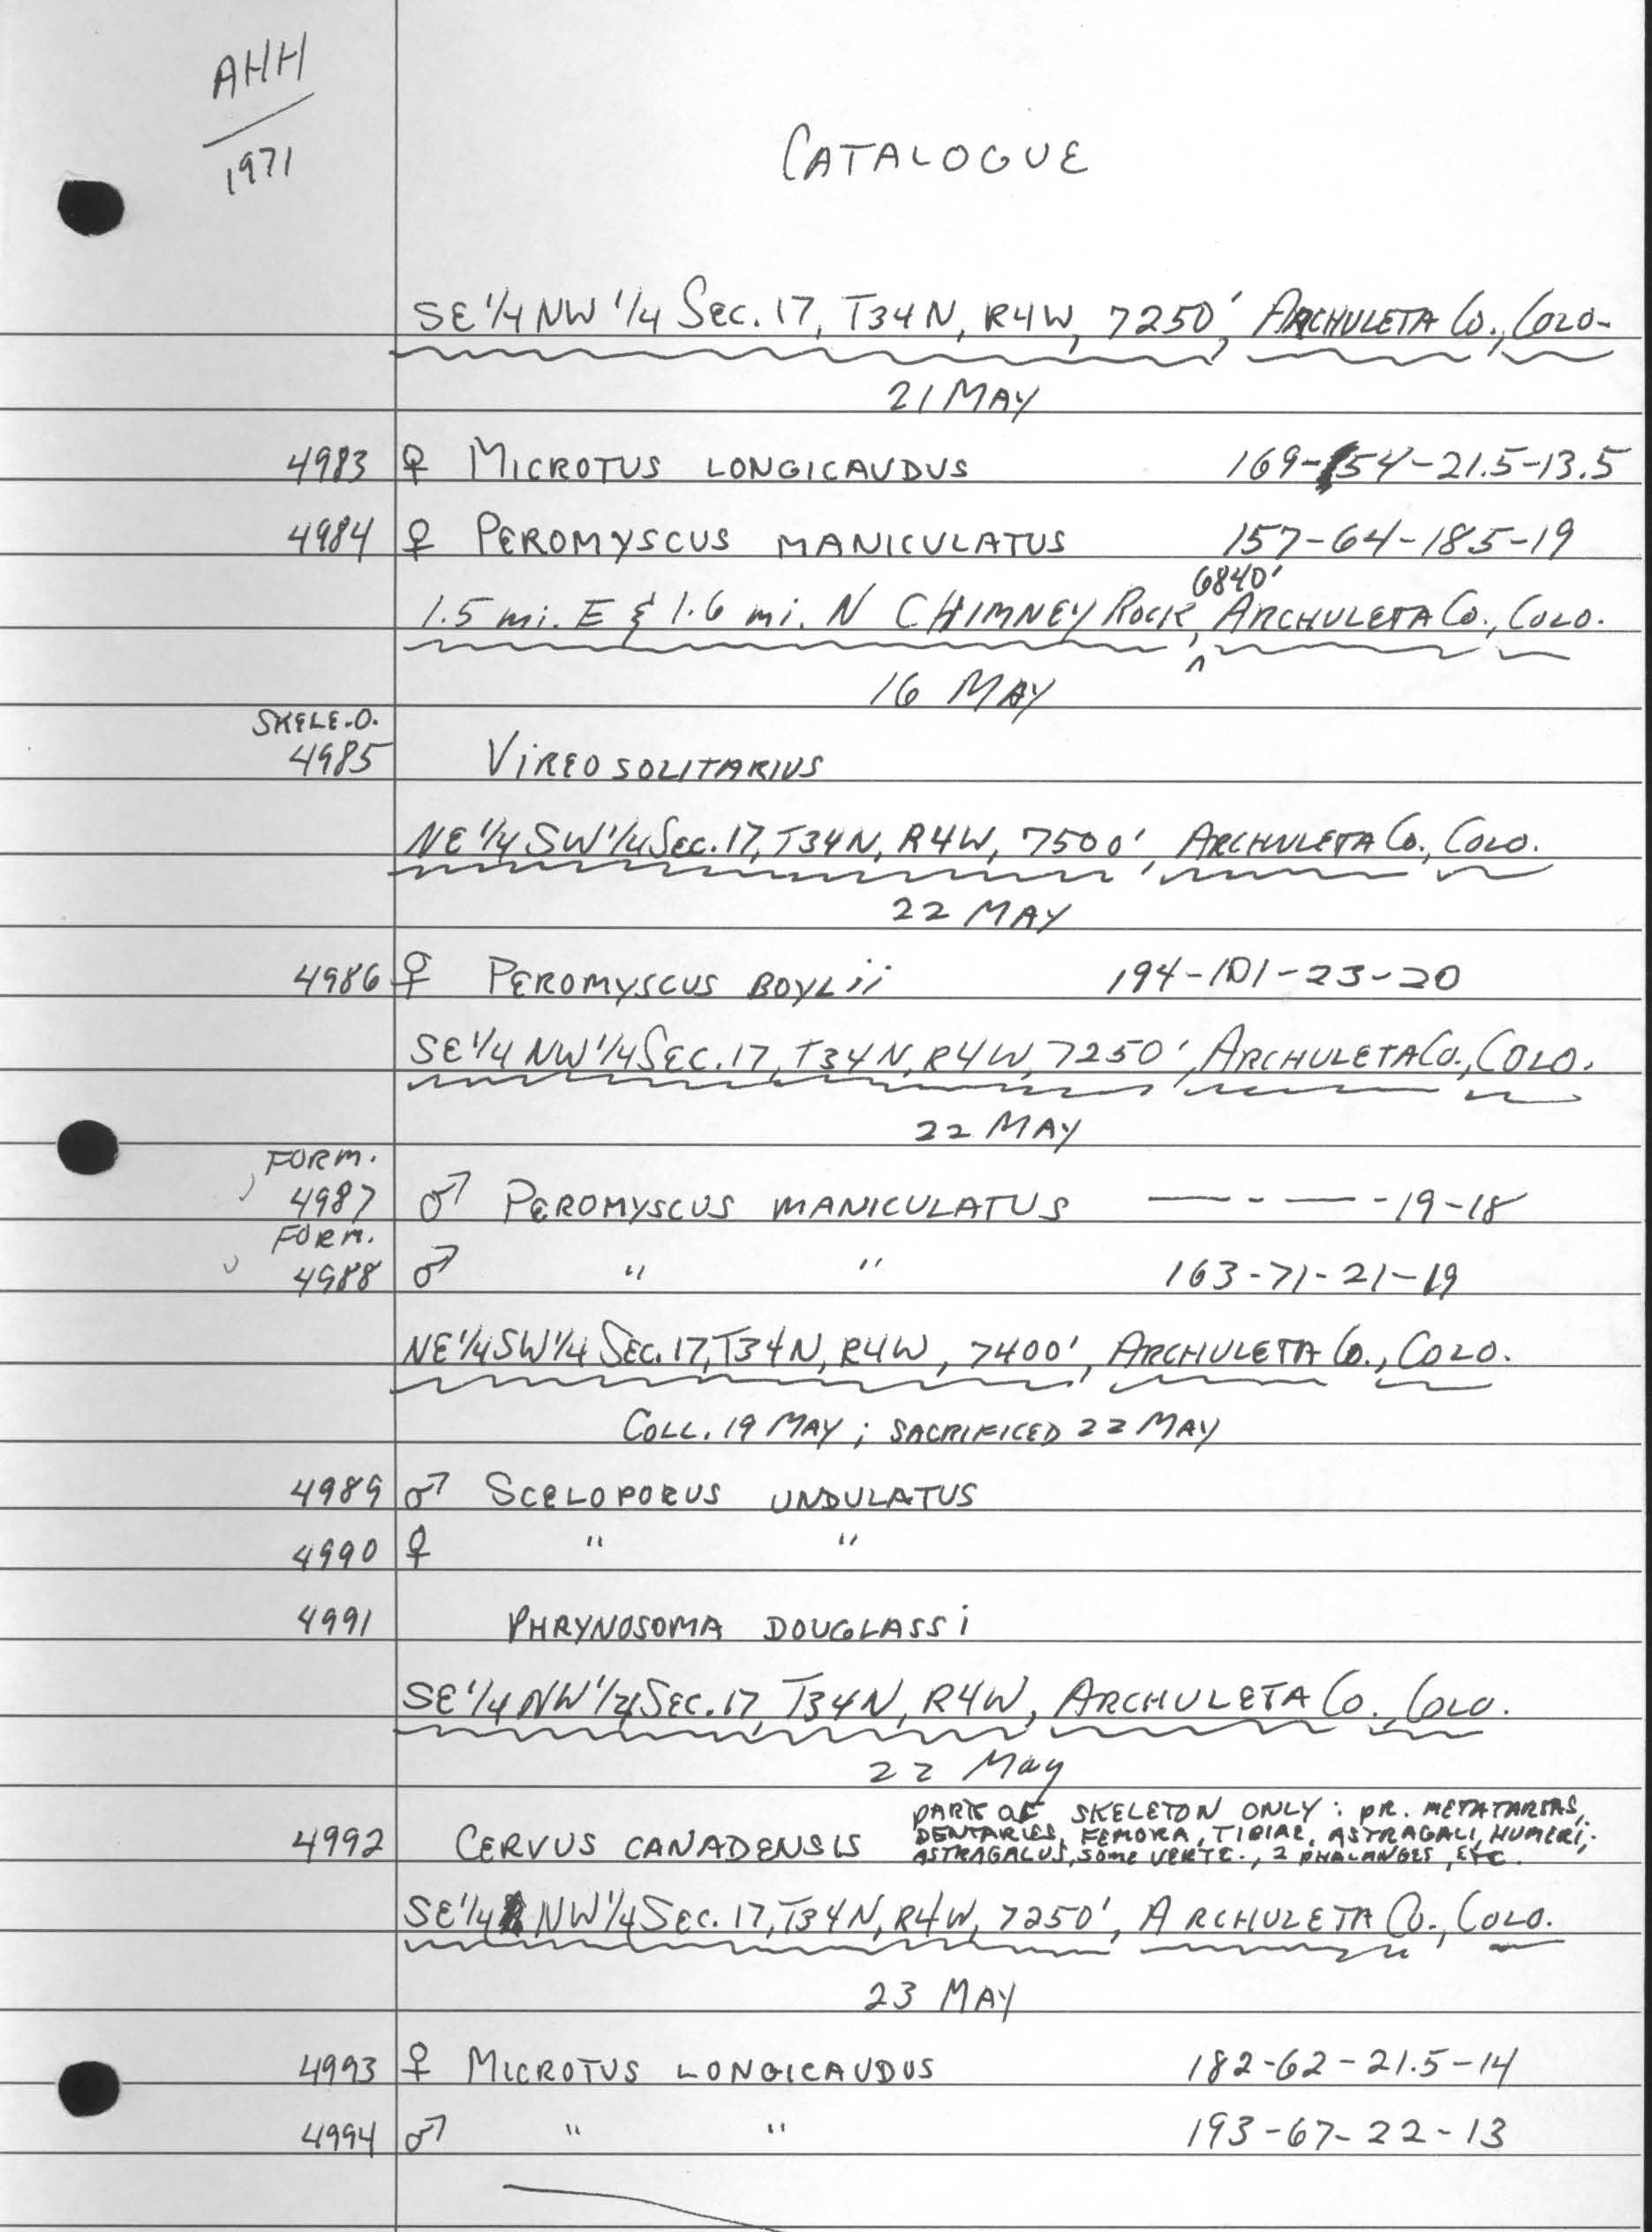 AHH
1971
CATALOGUE
SE 1/4 NW 1/4 Sec. 17, T34N, R4W, 7250', ARCHULETA Co., COLO.
21 MAY
4983 ♀ MICROTUS LONGICAUDUS 169-54-21.5-13.5
4984 ♀ PEROMYSCUS MANICULATUS 157-64-18.5-19
6840'
1.5 mi. E & 1.6 mi. N CHIMNEY ROCK, ^ ARCHULETA Co., COLO.
16 MAY
SKELE.O.
4985 VIREO SOLITARIUS
NE 1/4 SW 1/4 Sec. 17, T34N, R4W, 7500', ARCHULETA Co., COLO.
22 MAY
4986 ♀ PEROMYSCUS BOYLii 194-101-23-20
SE 1/4 NW 1/4 SEC. 17, T34N, R4W, 7250', ARCHULETA Co., COLO.
22 MAY
FORM.
4987 ♂ PEROMYSCUS MANICULATUS — - — - 19-18
FORM.
4988 ♂ " " 163-71-21-19
NE 1/4 SW 1/4 SEC. 17, T34N, R4W, 7400', ARCHULETA Co., COLO.
COLL. 19 MAY; SACRIFICED 22 MAY
4989 ♂ SCELOPORUS UNDULATUS
4990 ♀ " "
4991 PHRYNOSOMA DOUGLASSi
SE 1/4 NW 1/4 SEC. 17, T34N, R4W, ARCHULETA Co., COLO.
22 May
PART OF SKELETON ONLY: PR. METATARSAS,
4992 CERVUS CANADENSIS DENTARIES, FEMORA, TIBIAE, ASTRAGALI, HUMERI,
ASTRAGALUS, SOME VERTE., 2 PHALANGES, ETC.
SE 1/4 NW 1/4 SEC. 17, T34N, R4W, 7250', ARCHULETA Co., COLO.
23 MAY
4993 ♀ MICROTUS LONGICAUDUS 182-62-21.5-14
4994 ♂ " " 193-67-22-13